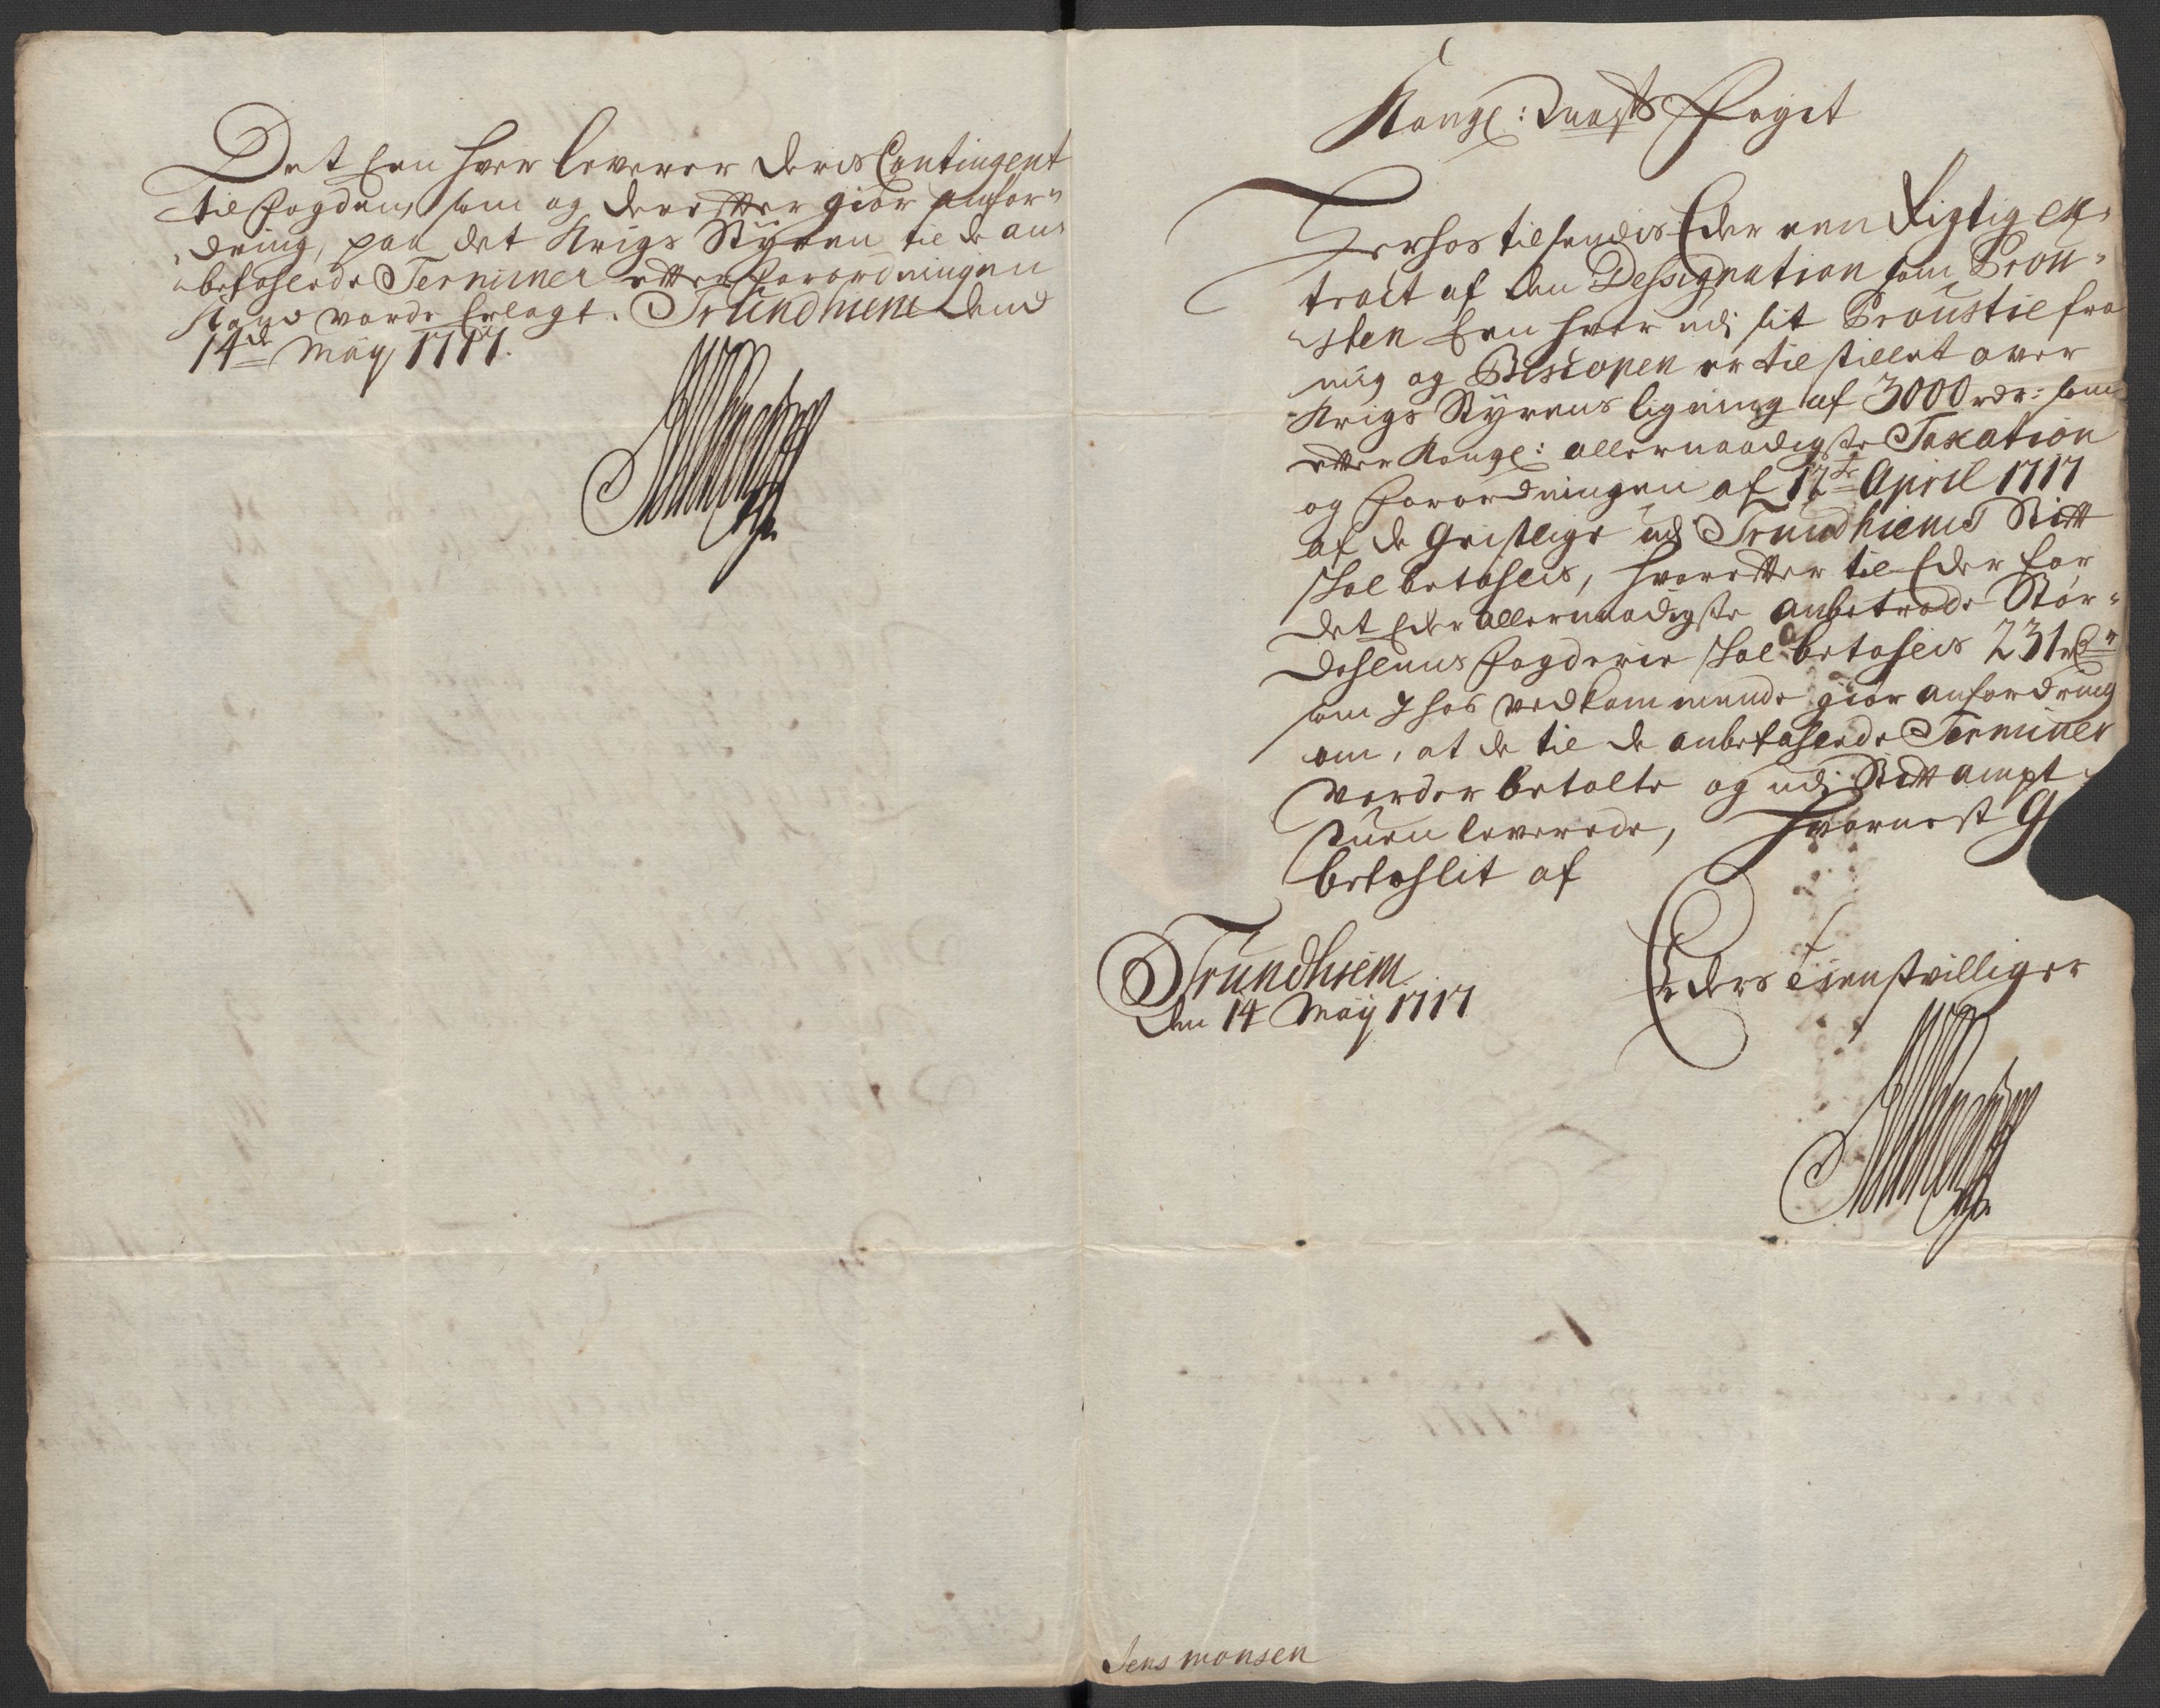 Det Een hver leverer deris Contingent
til fogden, som og derefter giør anfor„
„dring, paa det Krigs Styren til de an„
„befahlede Terminer efter forordningen
kand vorde Erlagt. Trundhiem dend
14de Maij 1717.
Kongl: Maysts Fogit
Herhos tilsendis Eder een Rigtig ex„
tract af den Dessignation som Prou„
„sten Een hver udj sit Proustie fra
mig og Biscopen er tilstillet over
Krigs Styrens ligning af 3000 rdr: som
efter Kongl: allernaadigste Taxation
og forordningen af 17de April 1717
af de Geistlige udj Trundhiems Stift
skal betahles, hvorefter til Eder for
det Eder allernaadigste anbetroede Stør„
dahlens fogderie skal betahles 231 rdr
som I hos vedkommende giør anfordring
om, at de til de anbefahlede Terminer
vorder betalte og udj Stiftampt„
stuen leverede, hvornest G
befahlit af
Trundhiem
den 14 Maij 1717
Eders tienstvilliger
Jens monsen